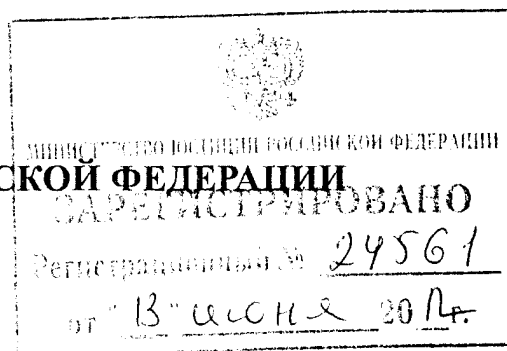 МИНИСТЕРСТВО ЮСТИЦИИ РОССИЙСКОЙ ФЕДЕРАЦИИ
СКОЙ ФЕДЕРАЦИИ
ЗАРЕГИСТРИРОВАНО
Регистрационный № 24561
от "13" июня 2012г.